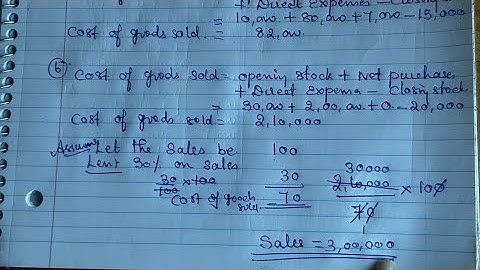 + Direct Expenses - Closing
= 10,000 + 80,000 + 7,000 - 15,000
Cost of goods sold. = 82,000.
(6) Cost of goods sold = opening stock + Net purchase
+ Direct Expense - Closing stock
= 30,000 + 2,00,000 + 0 - 20,000
Cost of goods sold = 2,10,000
Assum Let the sales be 100
Less 30% on sales
30/100 x 100 30
Cost of goods sold 70
30000
2,10,000 x 100
70
1
Sales = 3,00,000